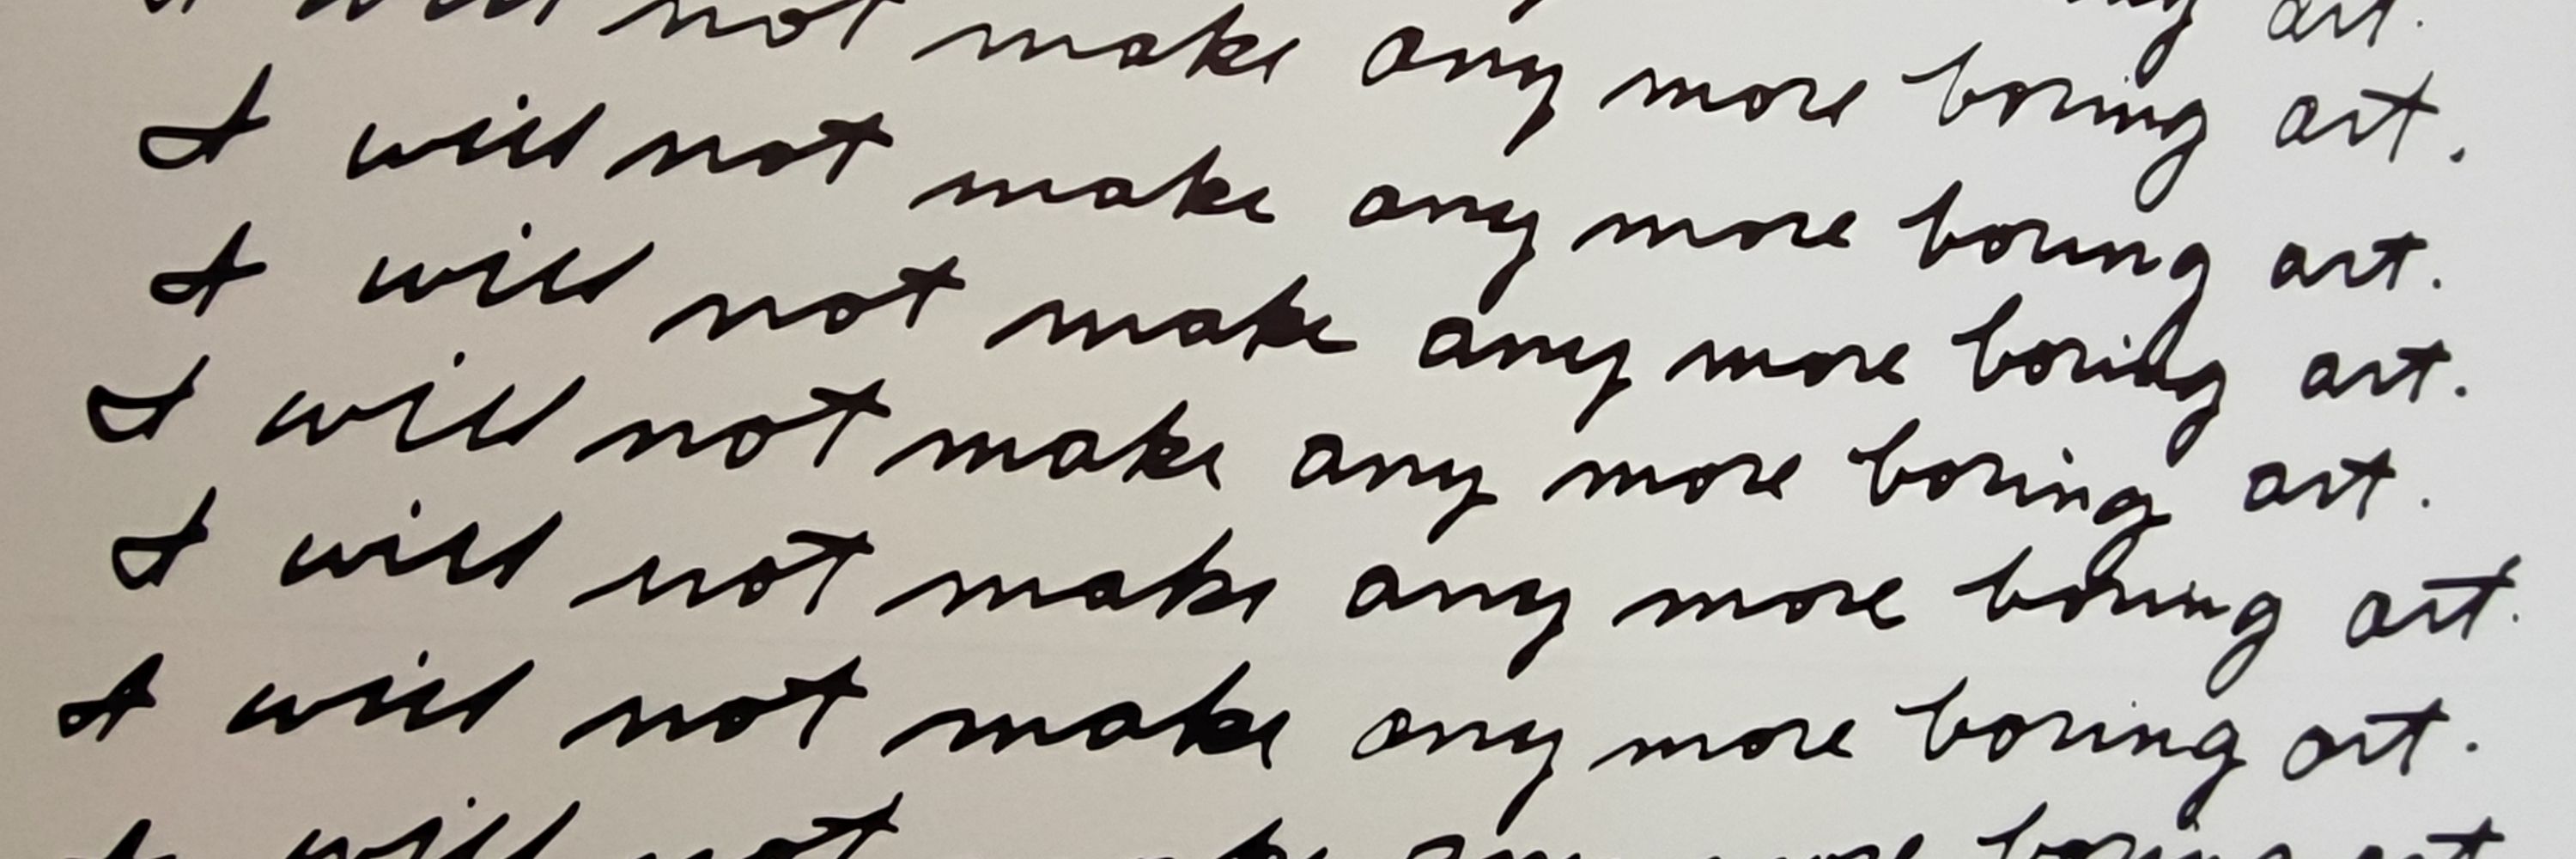 art.
I will not make any more boring art.
I will not make any more boring art.
I will not make any more boring art.
I will not make any more boring art.
I will not make any more boring art.
I will not make any more boring art.
I will not make any more boring art